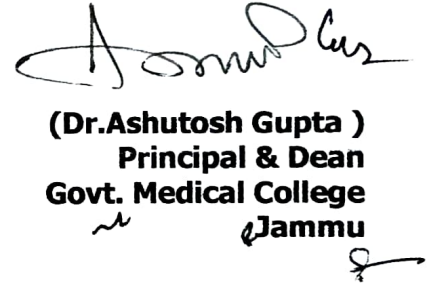 (Dr.Ashutosh Gupta )
Principal & Dean
Govt. Medical College
Jammu